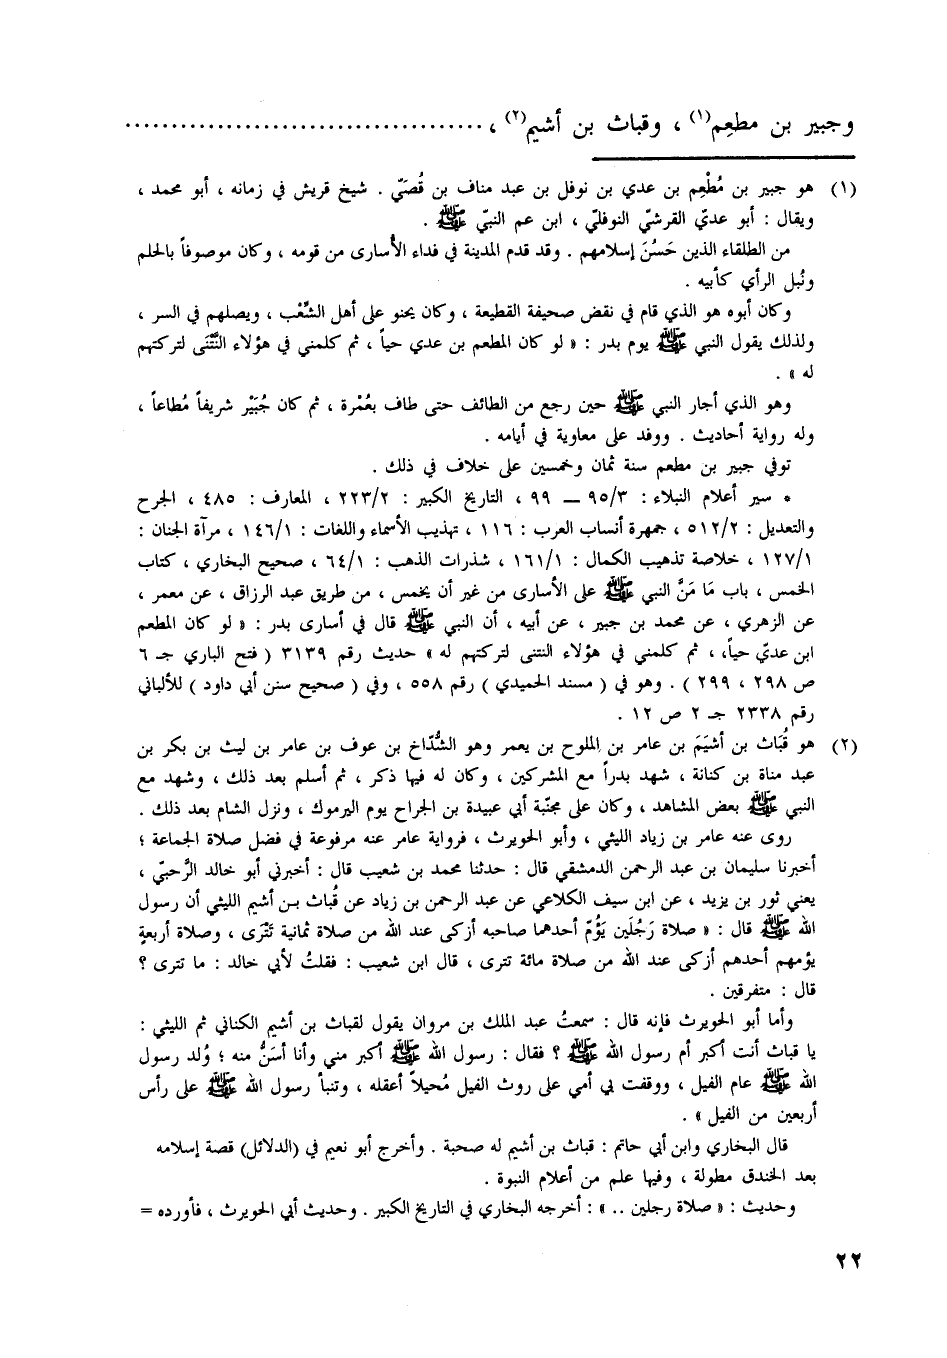 وجبير بن مطعِم(١) ، وقباث بن أشيم(٢) ، ......................................
(١) هو جبير بن مُطْعِم بن عدي بن نوفل بن عبد مناف بن قُصَيّ . شيخ قريش في زمانه ، أبو محمد ،
ويقال : أبو عديّ القرشيّ النوفليّ ، ابن عم النبيّ ﷺ .
من الطلقاء الذين حَسُنَ إسلامهم . وقد قدم المدينة في فداء الأُسارى من قومه ، وكان موصوفاً بالحلم
ونُبل الرأي كأبيه .
وكان أبوه هو الذي قام في نقض صحيفة القطيعة ، وكان يحنو على أهل الشِّعْب ، ويصلهم في السر ،
ولذلك يقول النبي ﷺ يوم بدر : « لو كان المطعم بن عدي حياً ، ثم كلمني في هؤلاء النَّتْنَى لتركتهم
له » .
وهو الذي أجار النبي ﷺ حين رجع من الطائف حتى طاف بعُمْرة ، ثم كان جُبَيْر شريفاً مُطاعاً ،
وله رواية أحاديث . ووفد على معاوية في أيامه .
توفي جبير بن مطعم سنة ثمان وخمسين على خلاف في ذلك .
* سير أعلام النبلاء : ٩٥/٣ ــ ٩٩ ، التاريخ الكبير : ٢٢٣/٢ ، المعارف : ٤٨٥ ، الجرح
والتعديل : ٥١٢/٢ ، جمهرة أنساب العرب : ١١٦ ، تهذيب الأسماء واللغات : ١٤٦/١ ، مرآة الجنان :
١٢٧/١ ، خلاصة تذهيب الكمال : ١٦١/١ ، شذرات الذهب : ٦٤/١ ، صحيح البخاري ، كتاب
الخمس ، باب مَا مَنَّ النبي ﷺ على الأسارى من غير أن يخمس ، من طريق عبد الرزاق ، عن معمر ،
عن الزهري ، عن محمد بن جبير ، عن أبيه ، أن النبي ﷺ قال في أسارى بدر : « لو كان المطعم
ابن عديّ حياً، ، ثم كلمني في هؤلاء النتنى لتركتهم له » حديث رقم ٣١٣٩ ( فتح الباري جـ ٦
ص ٢٩٨ ، ٢٩٩ ) . وهو في ( مسند الحميدي ) رقم ٥٥٨ ، وفي ( صحيح سنن أبي داود ) للألباني
رقم ٢٣٣٨ جـ ٢ ص ١٢ .
(٢) هو قُبَاث بن أشيَمَ بن عامر بن الملوح بن يعمر وهو الشُّدّاخ بن عوف بن عامر بن ليث بن بكر بن
عبد مناة بن كنانة ، شهد بدراً مع المشركين ، وكان له فيها ذكر ، ثم أسلم بعد ذلك ، وشهد مع
النبي ﷺ بعض المشاهد ، وكان على مجنّبة أبي عبيدة بن الجراح يوم اليرموك ، ونزل الشام بعد ذلك .
روى عنه عامر بن زياد الليثي ، وأبو الحويرث ، فرواية عامر عنه مرفوعة في فضل صلاة الجماعة ؛
أخبرنا سليمان بن عبد الرحمن الدمشقي قال : حدثنا محمد بن شعيب قال : أخبرني أبو خالد الرَّحبيّ ،
يعني ثور بن يزيد ، عن ابن سيف الكلاعي عن عبد الرحمن بن زياد عن قُباث بـن أشيم الليثي أن رسول
الله ﷺ قال : « صلاة رَجُلَين يَؤُمّ أحدهما صاحبه أزكى عند الله من صلاة ثمانية تَتْرَى ، وصلاة أربعةٍ
يؤمهم أحدهم أزكى عند الله من صلاة مائة تترى ، قال ابن شعيب : فقلتُ لأبي خالد : ما تترى ؟
قال : متفرقين .
وأما أبو الحويرث فإنه قال : سمعتُ عبد الملك بن مروان يقول لقباث بن أشيم الكناني ثم الليثي :
يا قباث أنت أكبر أم رسول الله ﷺ ؟ فقال : رسول الله ﷺ أكبر مني وأنا أسَنُّ منه ؛ وُلد رسول
الله ﷺ عام الفيل ، ووقفت بي أمي على روث الفيل مُحيلاً أعقله ، وتنبأ رسول الله ﷺ على رأس
أربعين من الفيل » .
قال البخاري وابن أبي حاتم : قباث بن أشيم له صحبة . وأخرج أبو نعيم في (الدلائل) قصة إسلامه
بعد الخندق مطولة ، وفيها علم من أعلام النبوة .
وحديث : « صلاة رجلين .. » : أخرجه البخاري في التاريخ الكبير . وحديث أبي الحويرث ، فأورده =
٢٢